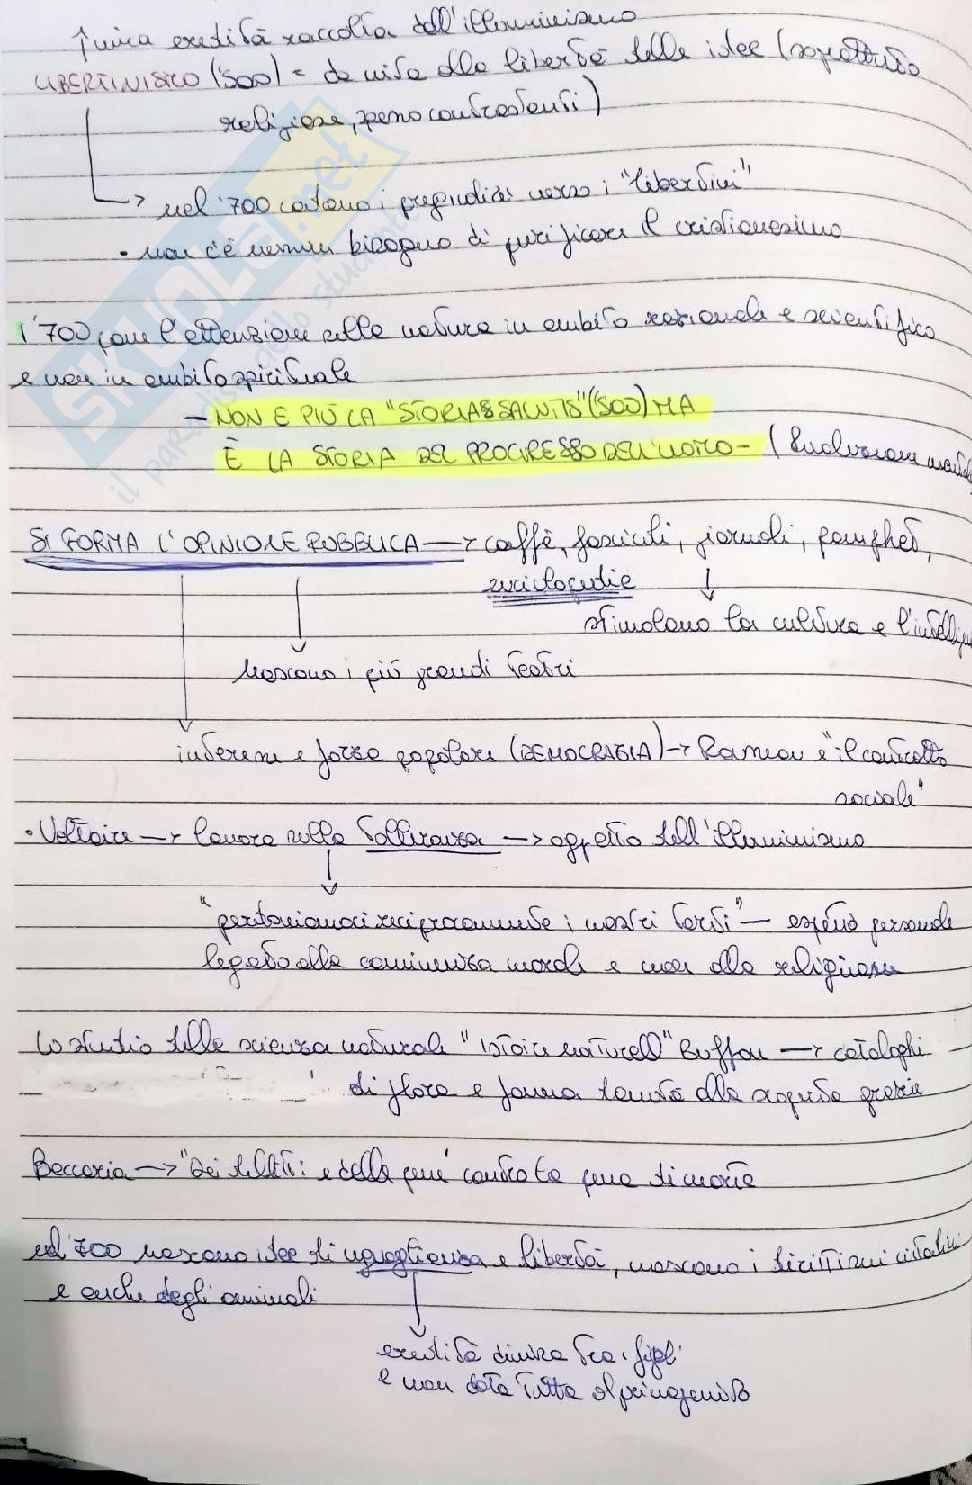 unica eredità raccolta dall'illuminismo
LIBERTINISMO ('500) = da vita alla libertà delle idee (soprattutto
religiose, pensa contrastanti)
→ nel '700 cadono i pregiudizi verso i "libertini"
• non c'è nessun bisogno di purificare il cristianesimo
l'700 pone l'attenzione alla natura in ambito razionale e scientifico
e non in ambito spirituale
- NON È PIÙ LA "STORIA SALVITS" ('500) MA
È LA STORIA DEL PROGRESSO DELL'UOMO - (Evoluzione
SI FORMA L'OPINIONE PUBBLICA → caffè, fascicoli, giornali, pamphlet,
enciclopedie
stimolano la cultura e l'intellig
Nascono i più grandi teatri
interesse e forza popolare (DEMOCRAZIA) → Rousseau e "il contratto
sociale"
• Voltaire → lavora sulla tolleranza → oggetto dell'illuminismo
"perdoniamoci reciprocamente i nostri torti" - aspetto personale
legato alla convivenza morale e non alla religione
Lo studio delle scienza naturale "Istoire naturell" Buffon → cataloghi
di flora e fauna tenuta alla scoperta grazie
Beccaria → "Dei delitti e delle pene" contro la pena di morte
nel '700 nascono idee di uguaglianza e libertà, nascono i diritti sui cittadini
e anche degli animali
eredità divisa tra i figli
e non data tutta al primogenito
skuola.net
il paradiso dello studente